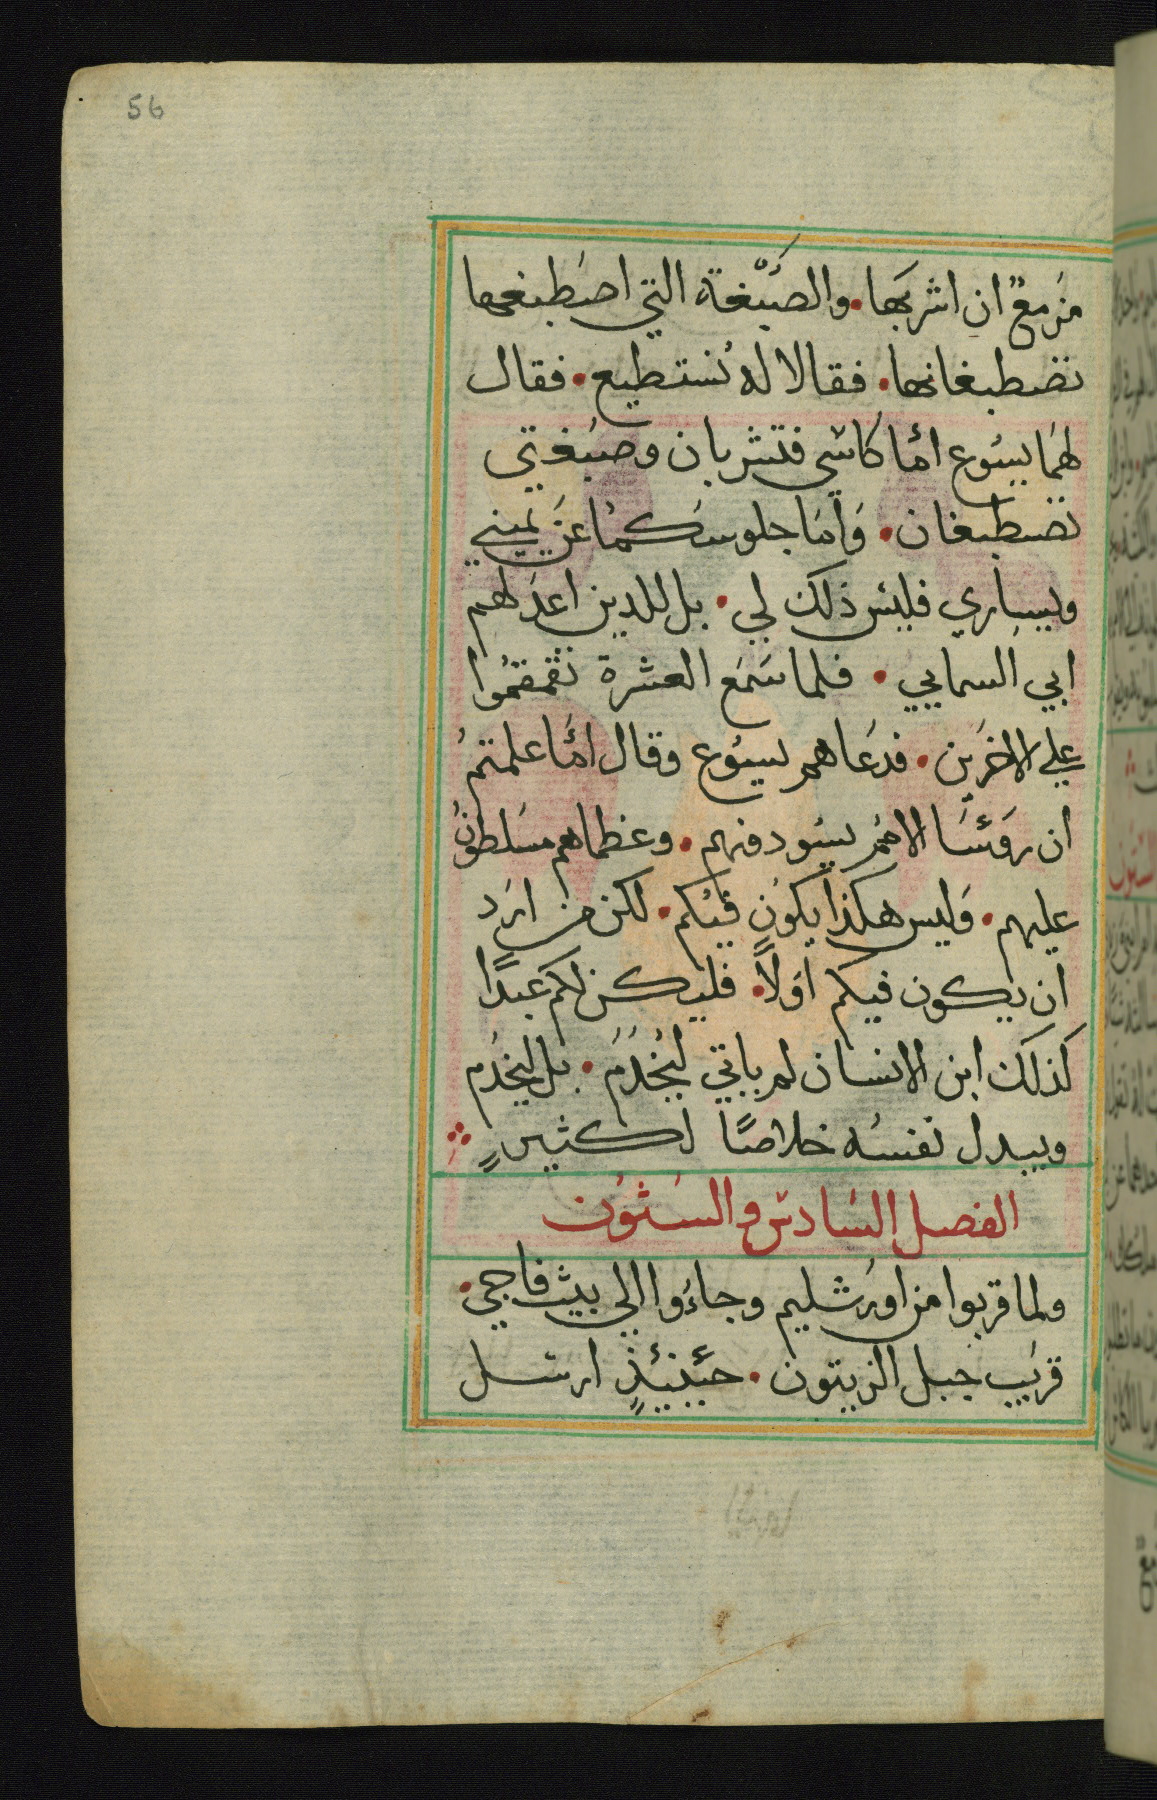 56
مزمعٌ ان اشربها. والصبغة التي اصطبغها
تصطبغانها. فقالا له نستطيع. فقال
لهما يسوع امّا كاسي فتشربان وصبغتي
تصطبغان. وامّا جلوسكما عن يميني
ويساري فليس ذلك لي. بل للذين اعد لهم
ابي السمايي. فلما سمع العشرة تقمقموا
علي الاخرين. فدعاهم يسوع وقال امّا علمتم
ان روئسا الامم يسودونهم. وعظماهم مسلطون
عليهم. وليس هكذا يكون فيكم. لكن من ارد
ان يكون فيكم اولاً. فليكن لكم عبدًا
كذلك ابن الانسان لم ياتي ليُخدَم. بل ليخدُم
ويبدل نفسه خلاصًا لكثيرٍ
الفصل السادس والستون
ولما قربوا من اورشليم وجاءوا الي بيت فاجي.
قريب جبل الزيتون. حينئيذٍ ارسل